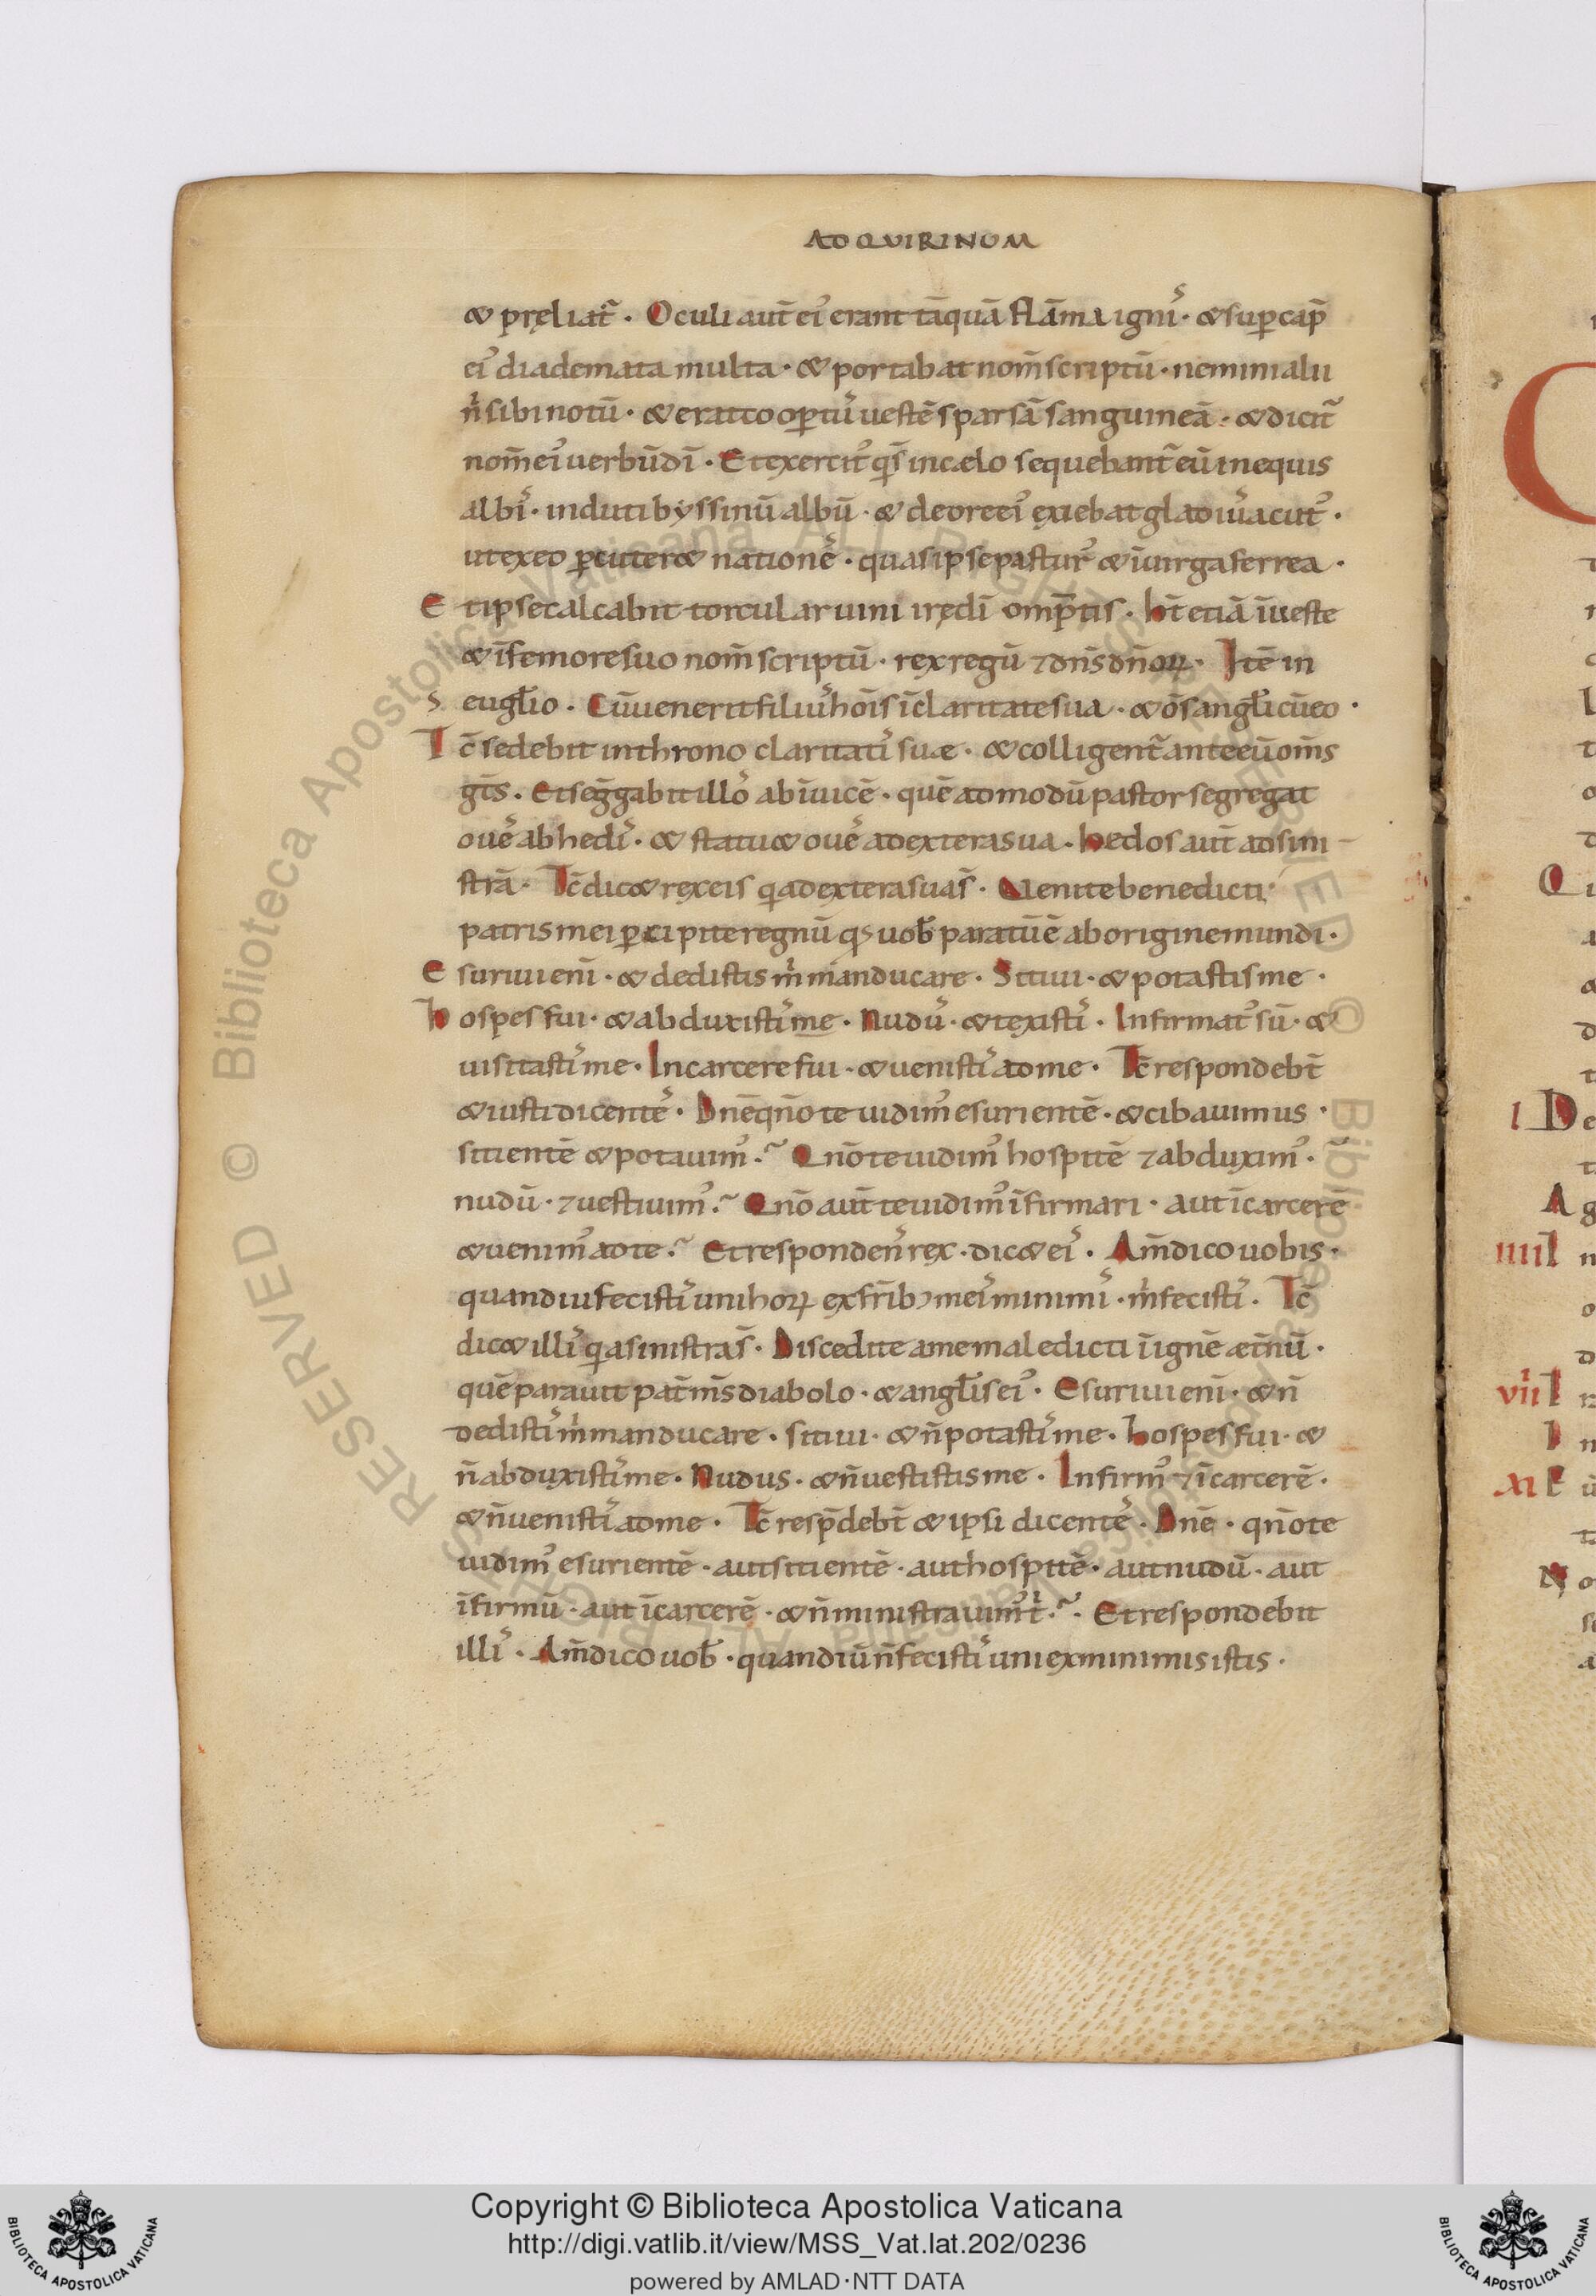 AD QVIRINVM
& pręliat᷑ · Oculi aut̄ ei᾽ erant tāquā flāma igni᾽ · & sup cap̄
ei᾽ diademata multa · & portabat nom̄ scriptū · nemini alii
n̄ sibi notū · & erat coopertu᾽ uestē sparsā sanguineā · & dicit᷑
nom̄ ei᾽ uerbū dī · Et exercit᾽ qͥ ē in cælo sequebant᷑ eū in equis
albi᾽ · induti byssinū albū · & de ore ei᾽ exiebat gladiu᾽ acut᾽ ·
ut ex eo percuter& natione᾽ · quas ipse pastur᾽ ē ī uirga ferrea ·
Et ipse calcabit torcular uini irędī omp̄tis · ht̄ etiā ī ueste
& ī femore suo nom̄ scriptū · rex regū ⁊ dn̄s dn̄oꝝ · Itē in
euglio · Cū uenerit filiu᾽ hoīs ī claritate sua · & os̄ angli cū eo ·
Tc̄ sedebit in throno claritati᾽ suæ · & colligent᷑ ante eū om̄s
gt̄s · Et seggabit illo᾽ ab īuicē · quē admodū pastor segregat
oue᾽ ab hedi᾽ · & statu& oue᾽ ad extera sua · hedos aut̄ ad sini-
strā · Tc̄ dic& rex eis qͥ ad extera sua s̄ · Uenite benedicti
patris mei percipite regnū qͩ uob paratū ē ab origine mundi ·
Esuriui enī · & dedistis m̄ manducare · Sitiui · & potastis me ·
hospes fui · & abduxisti᾽ me · Nudu᾽ · & texisti᾽ · Infirmat᾽ sū · &
uisitasti᾽ me · In carcere fui · & uenisti᾽ ad me · Tc̄ respondebt̄
& iusti dicente᾽ · Dn̄e qn̄o te uidim᾽ esurientē · & cibauimus ·
sitientē & potauim᾽ ·? Qn̄o te uidim᾽ hospitē ⁊ abduxim᾽ ·
nudū · ⁊ uestiuim᾽ ·? Qn̄o aut̄ te uidim᾽ īfirmari · aut ī carcerē
& uenim᾽ ad te ·? Et responden᾽ rex · dic& ei᾽ · Am̄ dico uobis ·
quandiu fecisti᾽ uni hoꝝ ex frīb; mei᾽ minimi᾽ · m̄ fecisti᾽ · Tc̄
dic& illi᾽ qͥ a sinistra s̄ · Discedite a me maledicti ī ignē æt̄nū ·
quē parauit pat̄ m̄s diabolo · & anglis ei᾽ · Esuriui enī · & n̄
dedisti᾽ m̄ manducare · sitiui · & n̄ potasti᾽ me · hospes fui · &
n̄ abduxisti᾽ me · Nudus · & n̄ uestistis me · Infirm᾽ ⁊ ī carcerē ·
& n̄ uenisti᾽ ad me · Tc̄ resp̄debt̄ & ipsi dicente᾽ · Dn̄e · qn̄o te
uidim᾽ esurientē · aut sitientē · aut hospitē · aut nudū · aut
īfirmū · aut ī carcerē · & n̄ ministrauim᾽ t̄ ·? · Et respondebit
illi᾽ · Am̄ dico uob · quandiū n̄ fecisti᾽ uni ex minimis istis ·
Copyright © Biblioteca Apostolica Vaticana
http://digi.vatlib.it/view/MSS_Vat.lat.202/0236
powered by AMLAD·NTT DATA